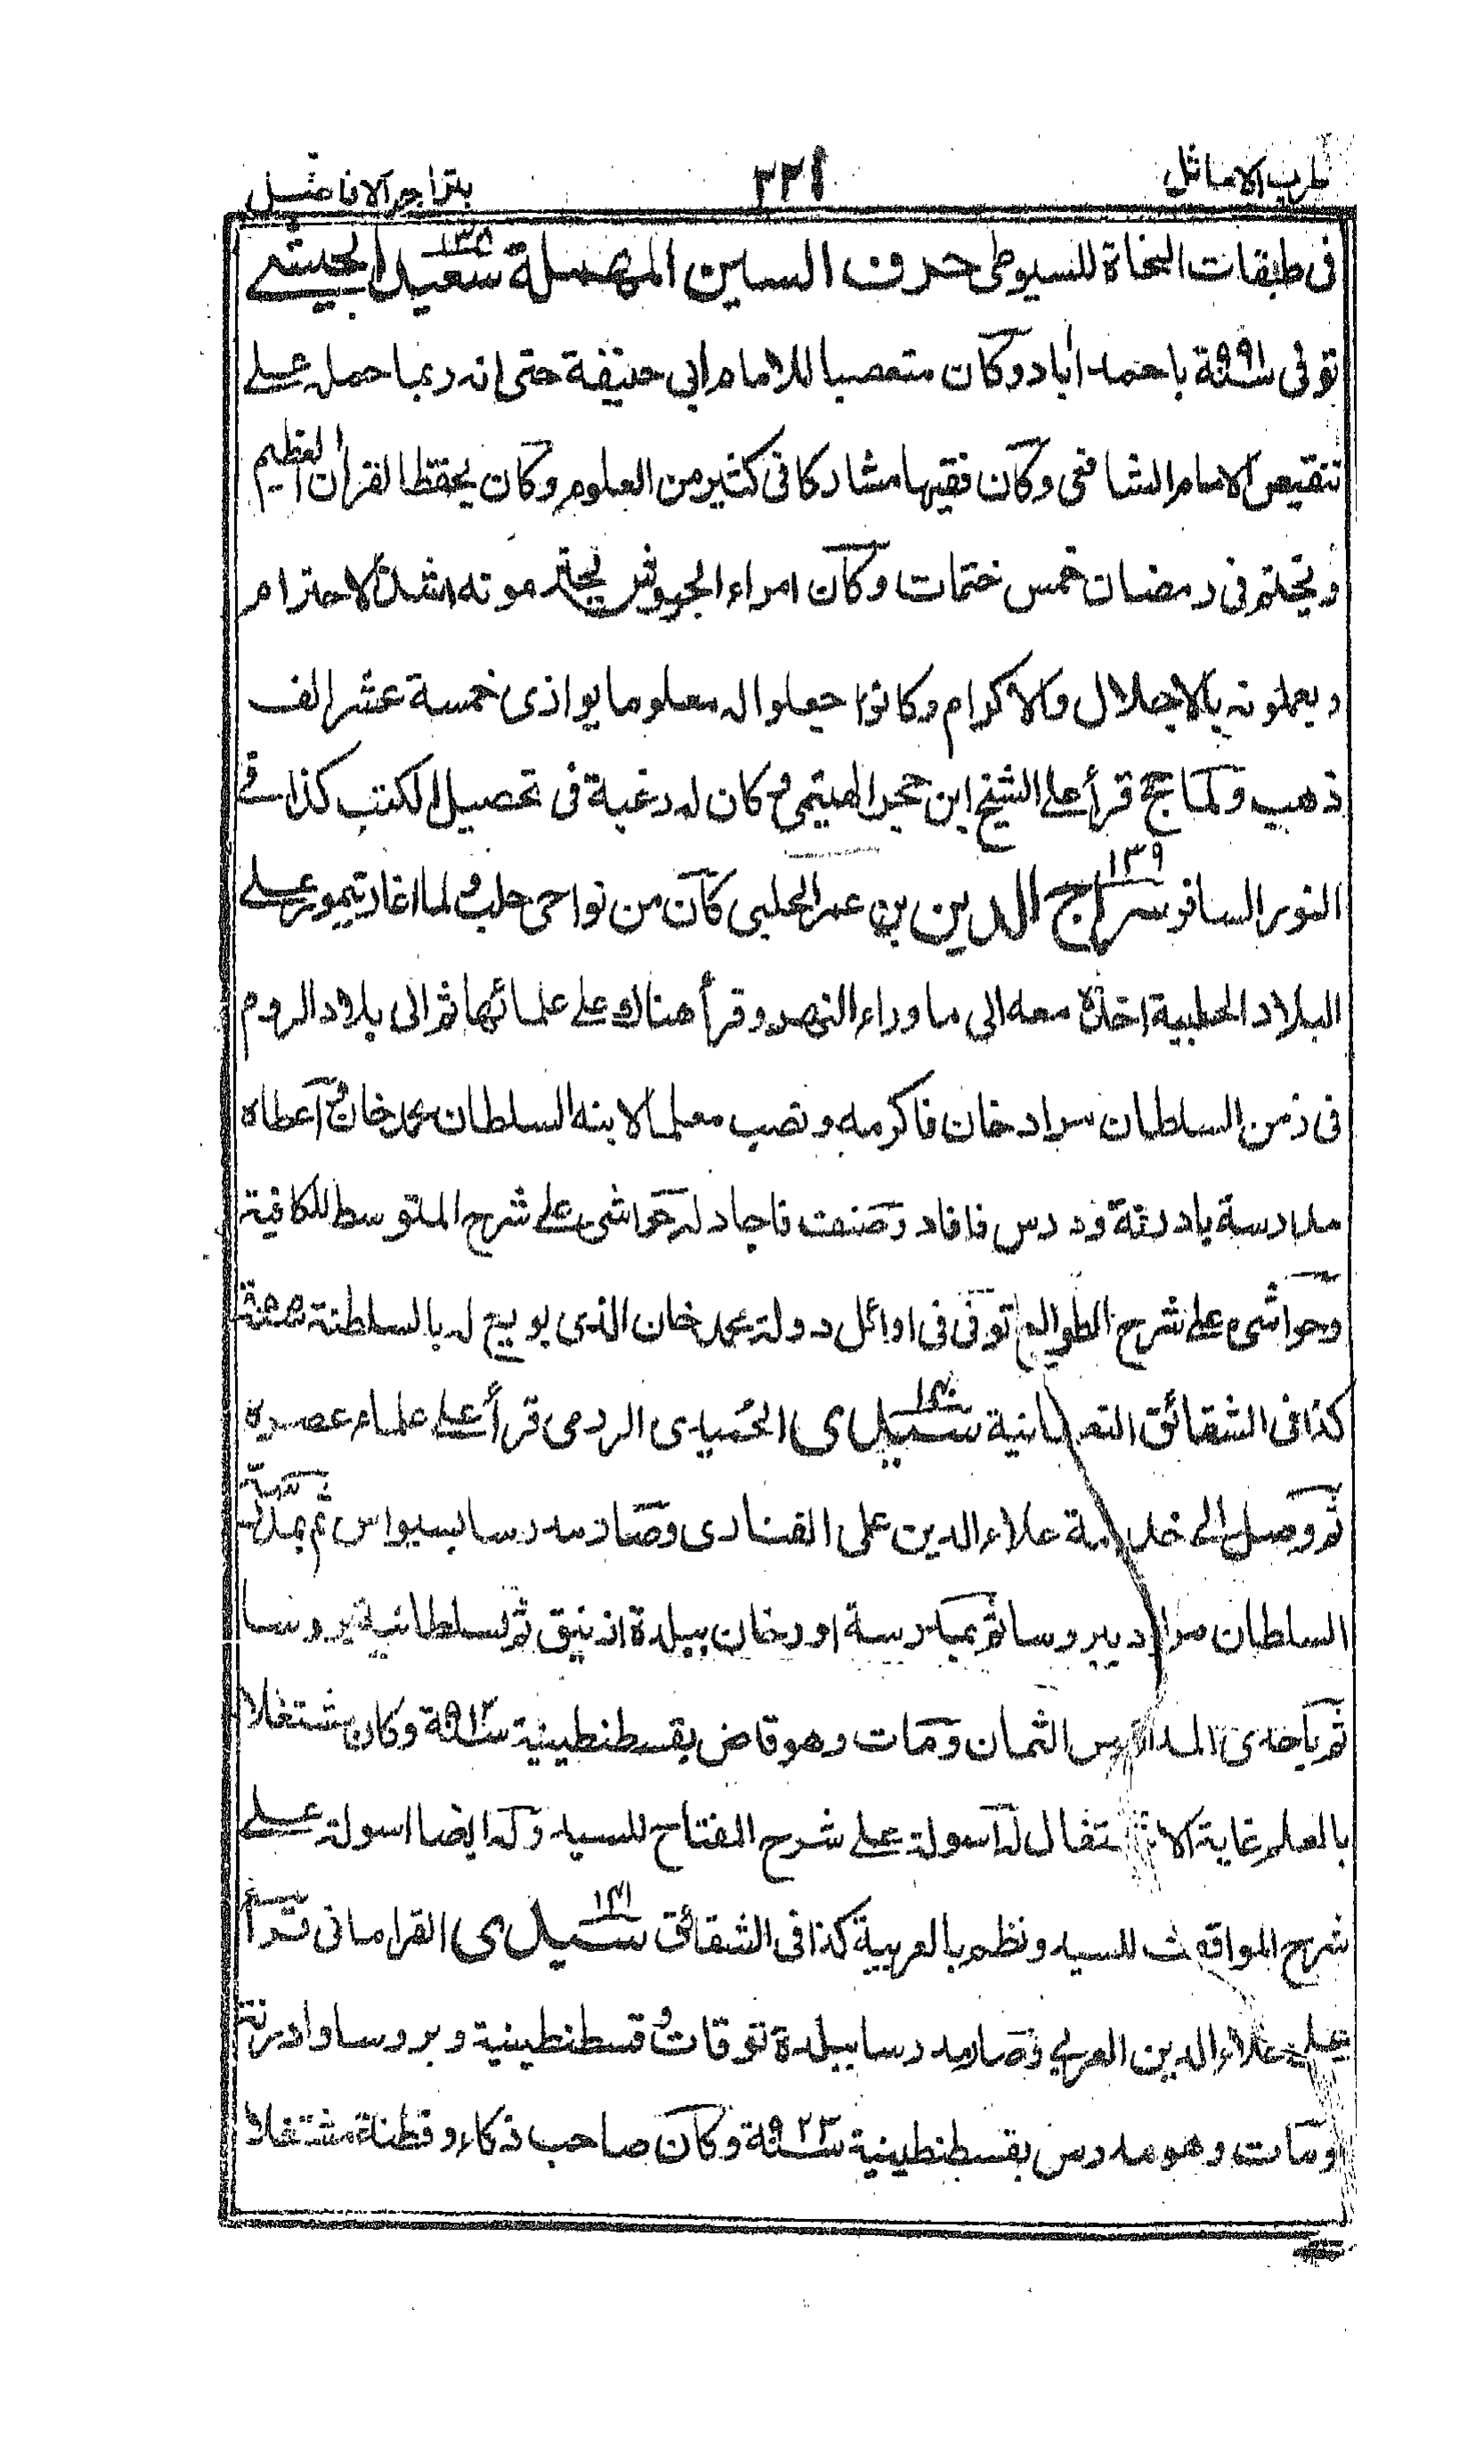 طرب الاماثل ٢٢١ بتراجم الافاضل
فى طبقات النحاة للسيوطى حرف السين المهملة ١٣٨ سعيد الحبشے
توفى سنة ٩٩١ باحمد اباد وكان متعصبا للامام ابى حنيفة حتى انه ربما حمله علے
تنقيص الامام الشافعى وكان فقيها مشاركا فى كثير من العلوم وكان يحفظ القرآن العظيم
ويختم فى رمضان خمس ختمات وكان امراء الجيوش يحترمونه اشد الاحترام
ويعملونه بالاجلال والاكرام وكانوا جعلوا له معلوما يوازى خمسة عشر الف
ذهب ولما حج قرأ على الشيخ ابن حجر الهيتمى وكان له رغبة فى تحصيل الكتب كذا فے
النور السافر ١٣٩ سراج الدين بن عمر الحلبى كان من نواحى حلب ولما اغار تيمور علے
البلاد الحلبية اخذه معه الى ما وراء النهر وقرأ هناك على علمائها ثم الى بلاد الروم
فى زمن السلطان مراد خان فاكرمه ونصب معلما لابنه السلطان محمد خان ثم اعطاه
مدرسة بادرنة ودرس فافاد وصنف فاجاد له حواشى على شرح المتوسط للكافية
وحواشى على شرح الطوالع توفى فى اوائل دولة محمد خان الذى بويع له بالسلطنة سنة ٨٥٥
كذا فى الشقائق النعمانية ١٤٠ سيدى الحميدى الرومى قرأ على علماء عصره
ثم وصل الى خدمة علاء الدين على الفنارى وصار مدرسا بسيواس ثم بمدرسة
السلطان مراد ببروسا ثم بمدرسة اورخان ببلدة ازنيق ثم بسلطانية بروسا
ثم باحدى المدارس الثمان ومات وهو قاض بقسطنطينية سنة ٩١٢ وكان مشتغلا
بالعلم غاية الاشتغال له اسولة على شرح المفتاح للسيد وله ايضا اسولة علے
شرح المواقف للسيد ونظم بالعربية كذا فى الشقائق ١٤١ سيدى القرامانى قرأ
على علاء الدين العربى وصار مدرسا ببلدة توقات وقسطنطينية وبروسا وادرنة
ومات وهو مدرس بقسطنطينية سنة ٩٢٣ وكان صاحب ذكاء وفطنة مشتغلا